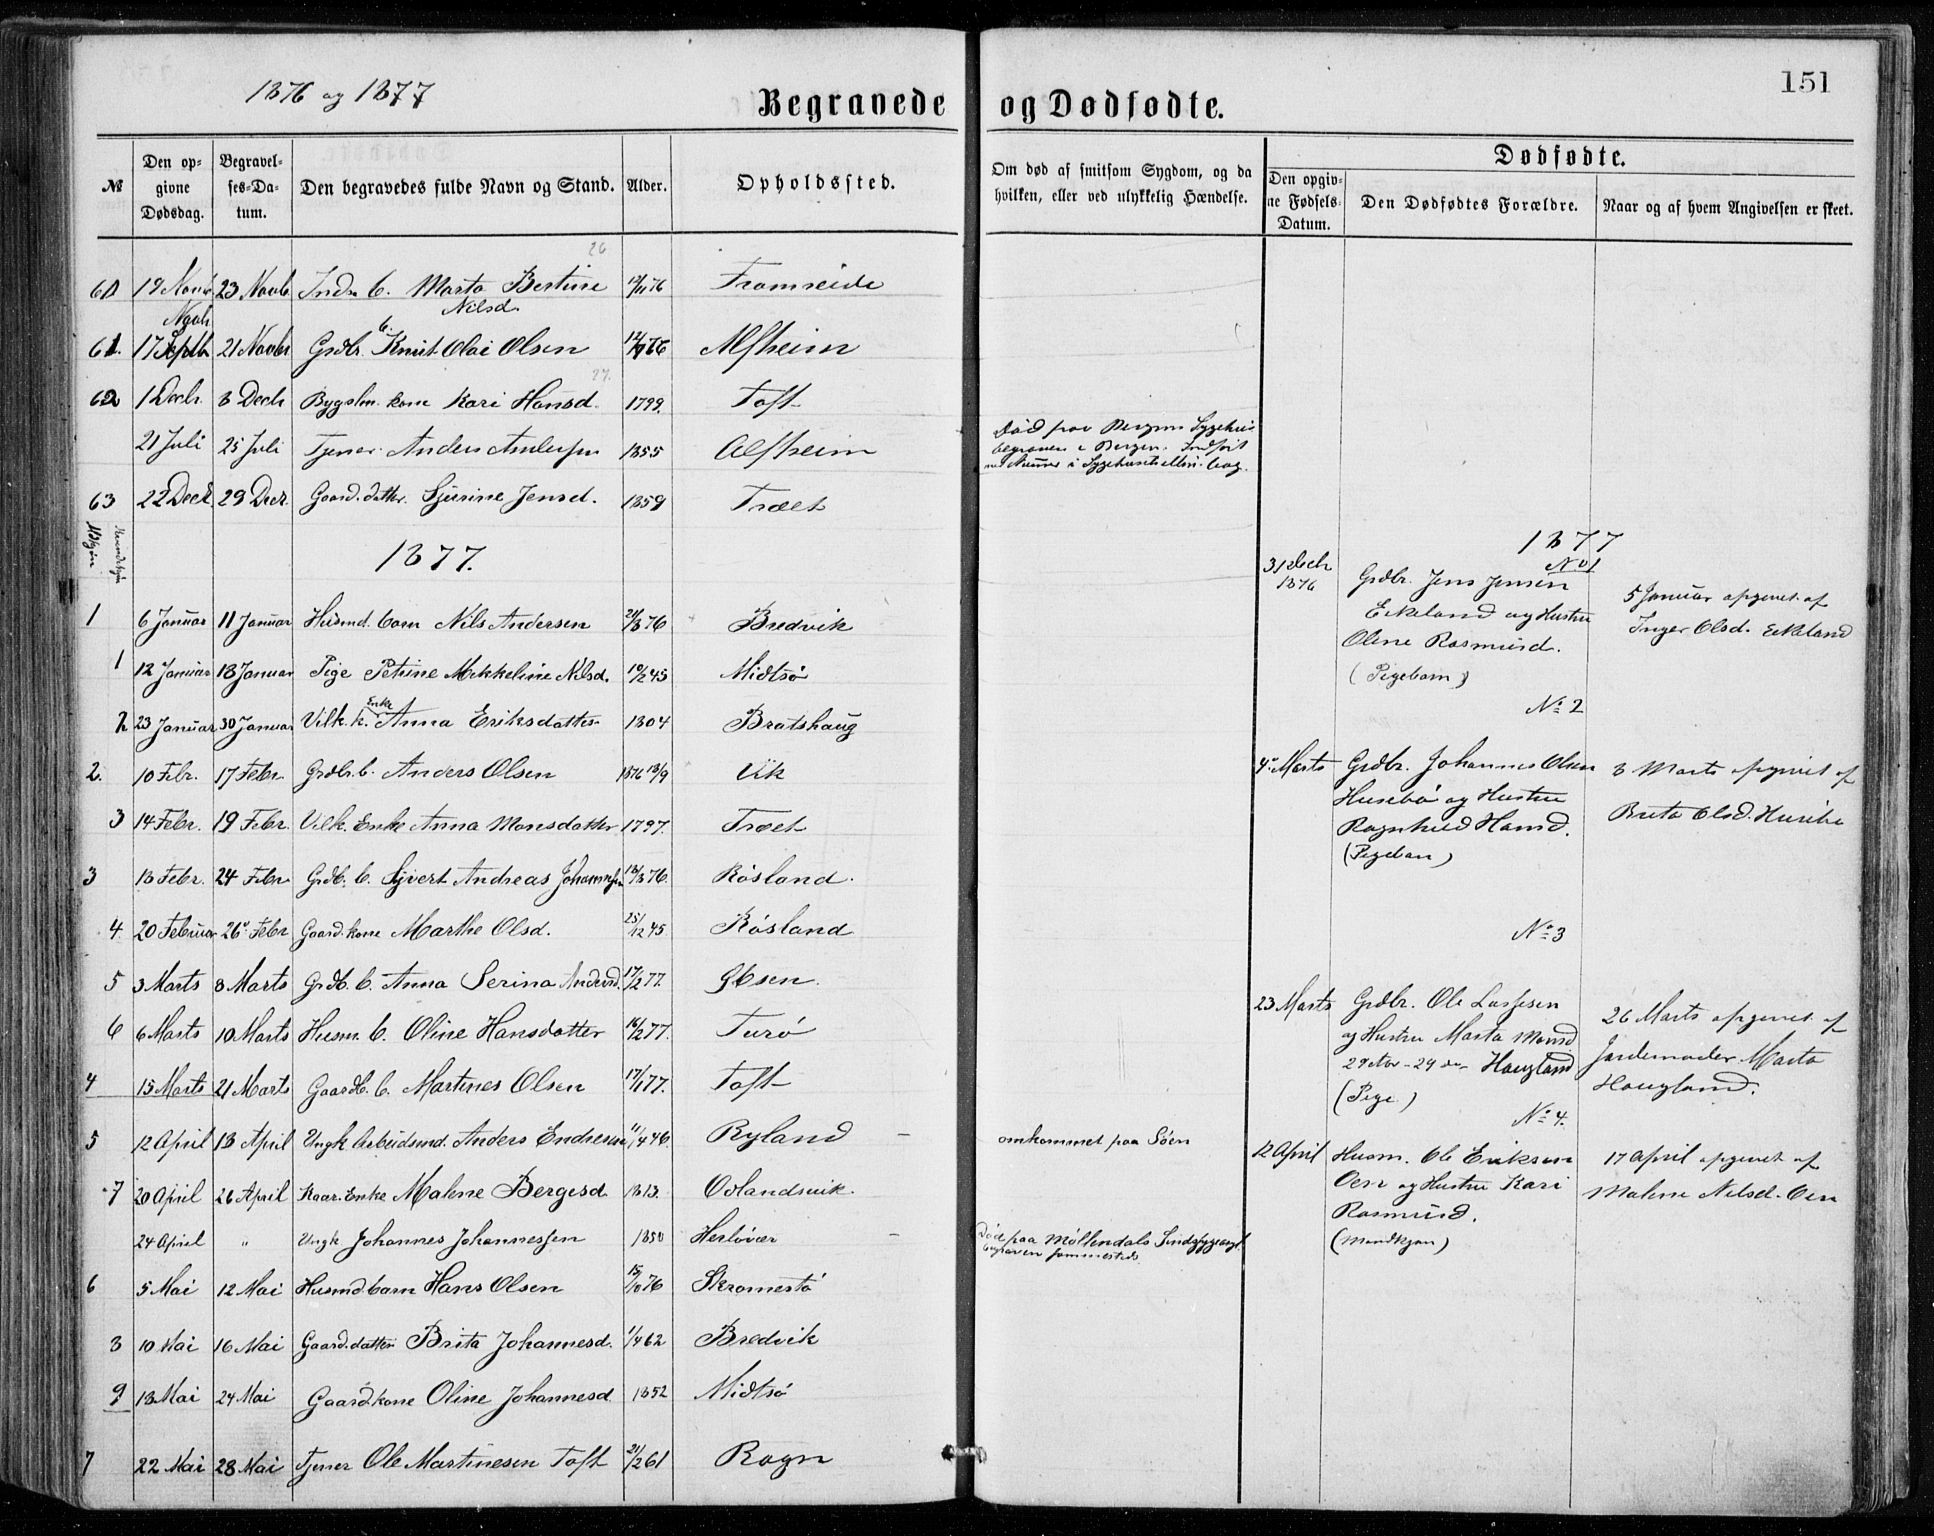 1876 og 1877
Begravede og Dødfødte.
151
№
Den opgivne Dødsdag.
Begravelses-Datum.
Den begravedes fulde Navn og Stand.
Alder.
Opholdssted.
Om død af smitsom Sygdom, og da hvilken, eller ved ulykkelig Hændelse.
Dødfødte.
Den opgivne Fødsels-Datum.
Den Dødfødtes Forældre.
Naar og af hvem Angivelsen er skeet.
26
60 19 Novb 23 Novb Inds b. Marta Bertine Nilsd. 12/11 76 Framreide
Novb.
61. 17 Septb 21 Novbr Grdbr. b. Knut Olai Olsen 76 Alfheim
27.
62 1 Decbr. 8 Decb Bygslm. kone Kari Hansd. 1799. Toft
21 Juli 25 Juli Tjener Anders Andersen 1855 Alfheim Død paa Bergens Sygehus begraven i Bergen. Indført
63 22 Decb. 29 Decr. Gaard.datter. Sjurine Jensd. 1859 Træet
M.Kjøn
Kvindekjøn
1877.
1 6 Januar 11 Januar Husmd. barn Nils Andersen 21/8 76 Bredvik
1 12 Januar 18 Januar Pige Petrine Mikkeline Nilsd. 10/2 45 Midtsø
2 23 Januar 30 Januar Vilk. k. Enke Anna Eriksdatter 1804 Bratshaug
2. 10 Febr. 17 Febr. Grdbr. b. Anders Olsen 1876 18/9 Vik
3 14 Febr. 19 Febr. Vilk. Enke Anna Monsdatter 1797. Træet
3 18 Febr. 24 Febr Grdb. b. Sjvert Andreas Johannesen 18/8 76. Røsland.
4 20 Februar 26 Febr Gaard.kone Marthe Olsd. 25/12 45 Røsland
5 3 Marts 8 Marts Grdb. b. Anna Serina Andersd. 17/2 77. Ebsen.
6 6 Marts 10 Marts Husm. b. Oline Hansdatter 16/2 77. Turø
4 15 Marts 21 Marts Gaardb. b. Martines Olsen 17/1 77. Toft
5 12 April 18 April Ungk. Arbeidsmd. Anders Endresen 11/4 46. Ryland omkommet paa Søen
7 20 April 26 April Kaar. Enke Malene Bergesd. 1813. Oddlandsvik.
24 April " Ungk Johannes Johannessen 1850 Herløvær Død paa Møllendals Sindssygeasyl. begraven sammesteds
6 5 Mai 12 Mai Husmd. barn Hans Olsen 15/10 76 Skromestø
8 10 Mai 16 Mai Gaard.datter Brita Johannesd. 1/4 62 Bredvik
9 18 Mai 24 Mai Gaardkone Oline Johannesd. 1852 Midtsø
7 22 Mai 28 Mai Tjener Ole Martinesen Toft 21/2 61 Rogn
1877
No 1
31 Decb 1876
Grdbr. Jens Jensen
Eikeland og Hustru
Oline Rasmusd.
(Pigebarn)
5 Januar opgivet af
Inger Olsd. Eikeland
No 2
4 Marts
Grdbr. Johannes Olsen
Husebø og Hustru
Ragnhild Hansd.
(Pigebarn)
8 Marts opgivet af
Brita Olsd. Husebø
No 3
23 Marts
Grdbr. Ole Lassesen
og Hustru Marta Monsd
Haugland
(Pige)
26 Marts opgivet af
Jordemoder Marta
Haugland.
No 4.
12 April
Husm. Ole Eriksen
Oen og Hustru Kari
Rasmusd.
(Mandkjøn)
17 April opgivet af
Malene Nilsd. Oen